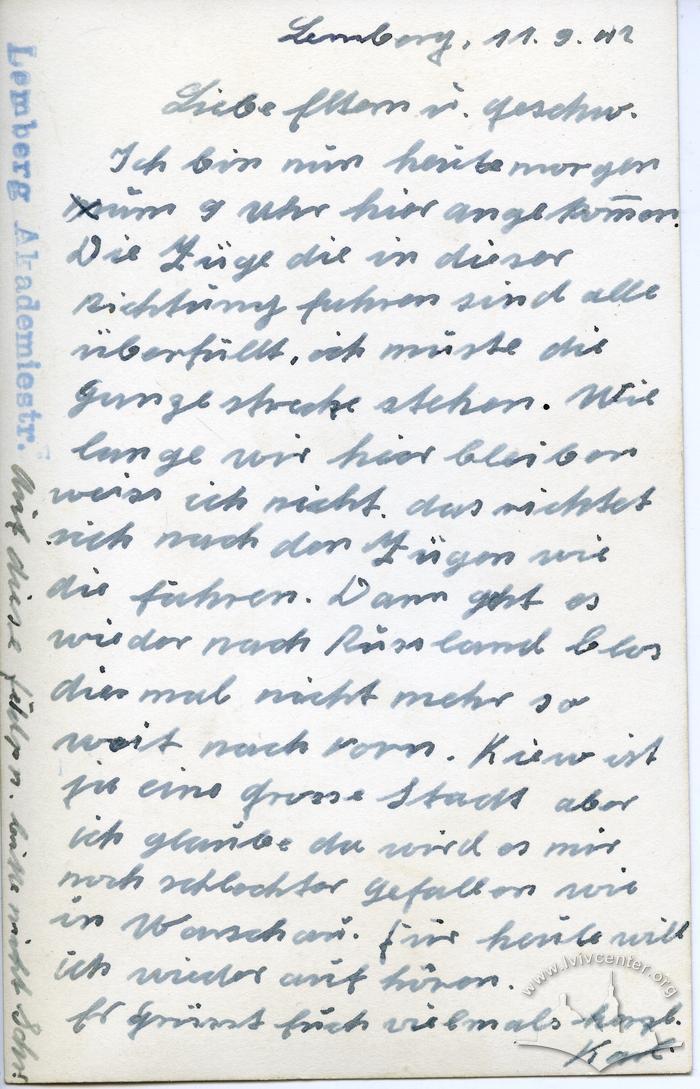 Lemberg, 11.9.42
Liebe Eltern u. Geschw.
Ich bin nun heute morgen
um 9 Uhr hier angekom̅en.
Die Züge die in dieser
Richtung fahren sind alle
überfüllt, ich muste die
Ganze strecke stehen. Wie
lange wir hier bleiben
weiss ich nicht. das richtet
sich nach den Zügen wie
die fahren. Dann geht es
wieder nach Russland blos
dies mal nicht mehr so
weit nach vorn. Kiew ist
ja eine grosse Stadt aber
ich glaube da wird es mir
noch schlechter Gefallen wie
in Warschau. Für heute will
ich wieder auf hören.
Es grüsst Euch vielmals herzl.
Karl.
Lemberg Akademiestr.
Auf diese Feldp n. bitte nicht Schr.
www.lvivcenter.org